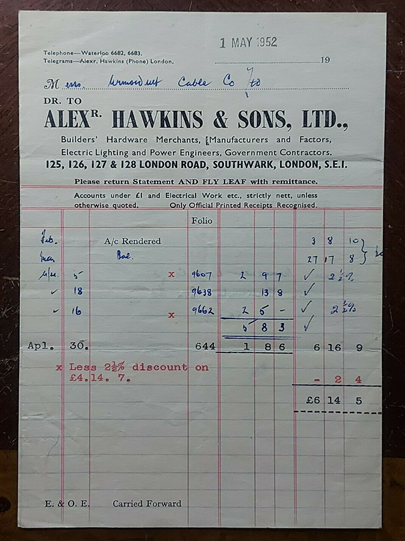 1 MAY 1952
Telephone—Waterloo 6682, 6683.
Telegrams—Alexr. Hawkins (Phone) London.
19
Messrs. Cable Co
DR. TO
ALEXR. HAWKINS & SONS, LTD.,
Builders' Hardware Merchants, Manufacturers and Factors,
Electric Lighting and Power Engineers, Government Contractors.
125, 126, 127 & 128 LONDON ROAD, SOUTHWARK, LONDON, S.E.1.
Please return Statement AND FLY LEAF with remittance.
Accounts under £1 and Electrical Work etc., strictly nett, unless
otherwise quoted. Only Official Printed Receipts Recognised.
Folio
Feb. A/c Rendered 3 8 10
Mar Bal. 17 17 8
5 x 9607 2 9 7 ✓ 2½%
✓ 18 9638 13 8 ✓
✓ 16 x 9662 2 5 - ✓ 2½%
5 8 3 ✓
Apl. 30. 644 1 8 6 6 16 9
x Less 2½% discount on
£4.14. 7. - 2 4
£6 14 5
E. & O. E. Carried Forward